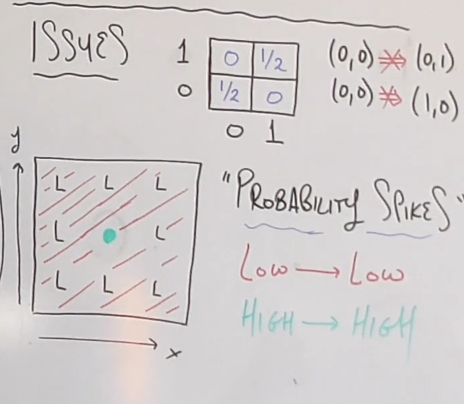 ISSUES
1 0 1/2 (0,0) ⇏ (0,1)
0 1/2 0 (0,0) ⇏ (1,0)
0 1
y
L L L
L L
L L L
x
"PROBABILITY SPIKES"
LOW → LOW
HIGH → HIGH